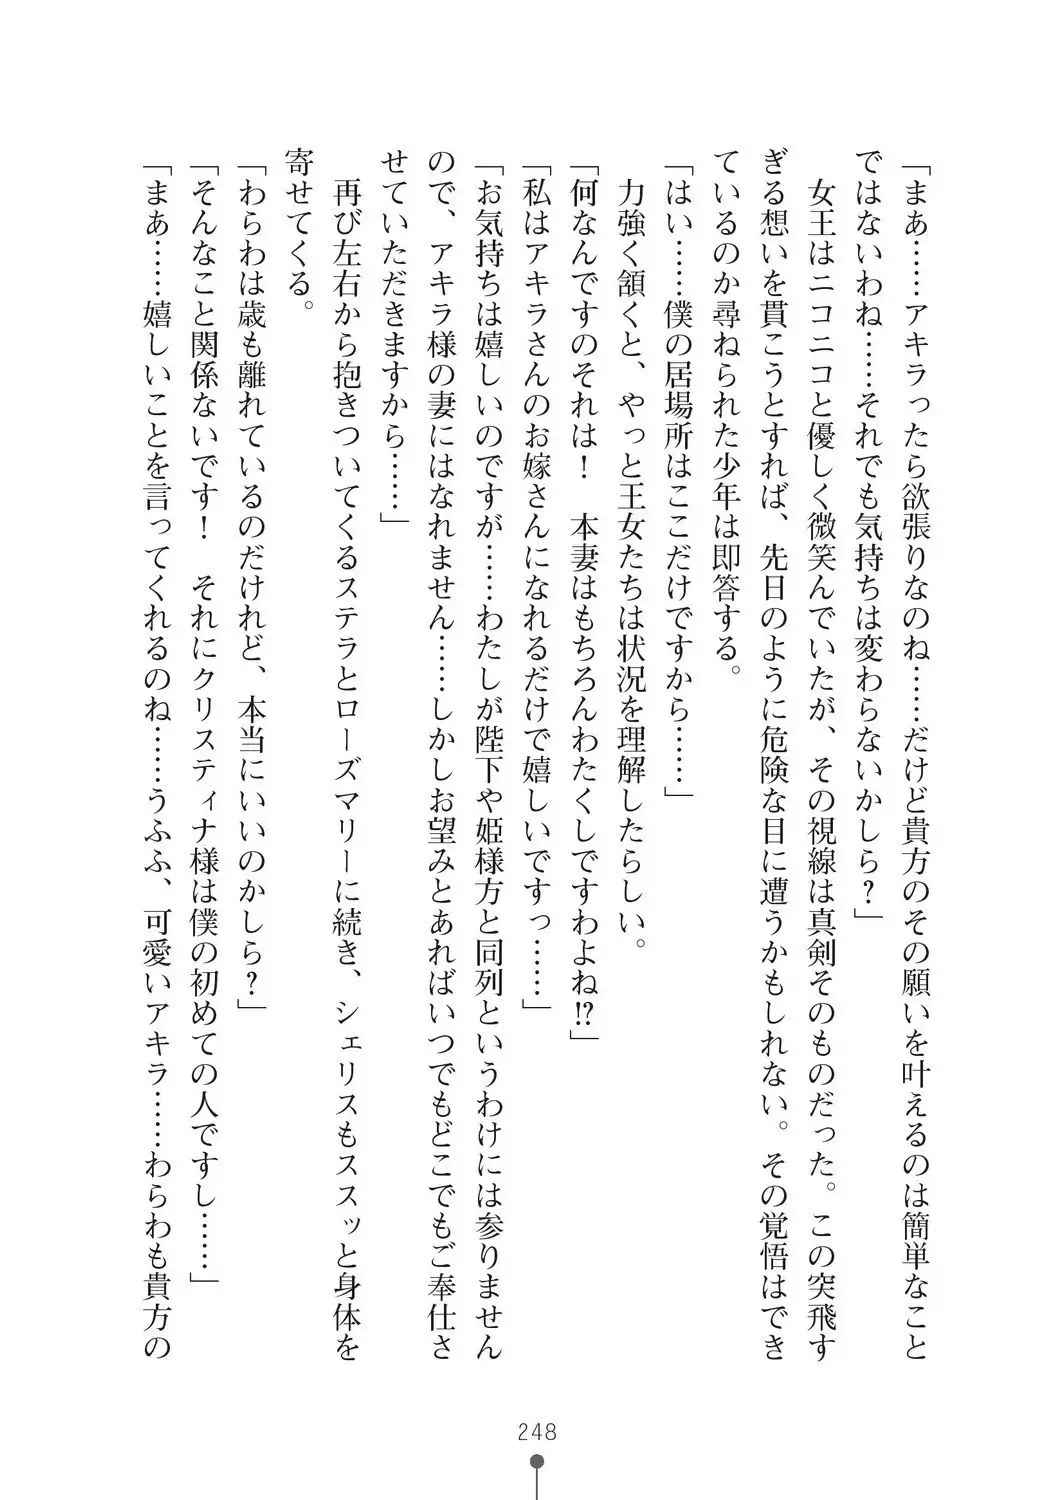 「まあ……アキラったら欲張りなのね……だけど貴方のその願いを叶えるのは簡単なこと
ではないわね……それでも気持ちは変わらないかしら？」
　女王はニコニコと優しく微笑んでいたが、その視線は真剣そのものだった。この突飛す
ぎる想いを貫こうとすれば、先日のように危険な目に遭うかもしれない。その覚悟はでき
ているのか尋ねられた少年は即答する。
「はい……僕の居場所はここだけですから……」
　力強く頷くと、やっと王女たちは状況を理解したらしい。
「何なんですのそれは！　本妻はもちろんわたくしですわよね!?」
「私はアキラさんのお嫁さんになれるだけで嬉しいですっ……」
「お気持ちは嬉しいのですが……わたしが陛下や姫様方と同列というわけには参りません
ので、アキラ様の妻にはなれません……しかしお望みとあればいつでもどこでもご奉仕さ
せていただきますから……」
　再び左右から抱きついてくるステラとローズマリーに続き、シェリスもススッと身体を
寄せてくる。
「わらわは歳も離れているのだけれど、本当にいいのかしら？」
「そんなこと関係ないです！　それにクリスティナ様は僕の初めての人ですし……」
「まあ……嬉しいことを言ってくれるのね……うふふ、可愛いアキラ……わらわも貴方の
248